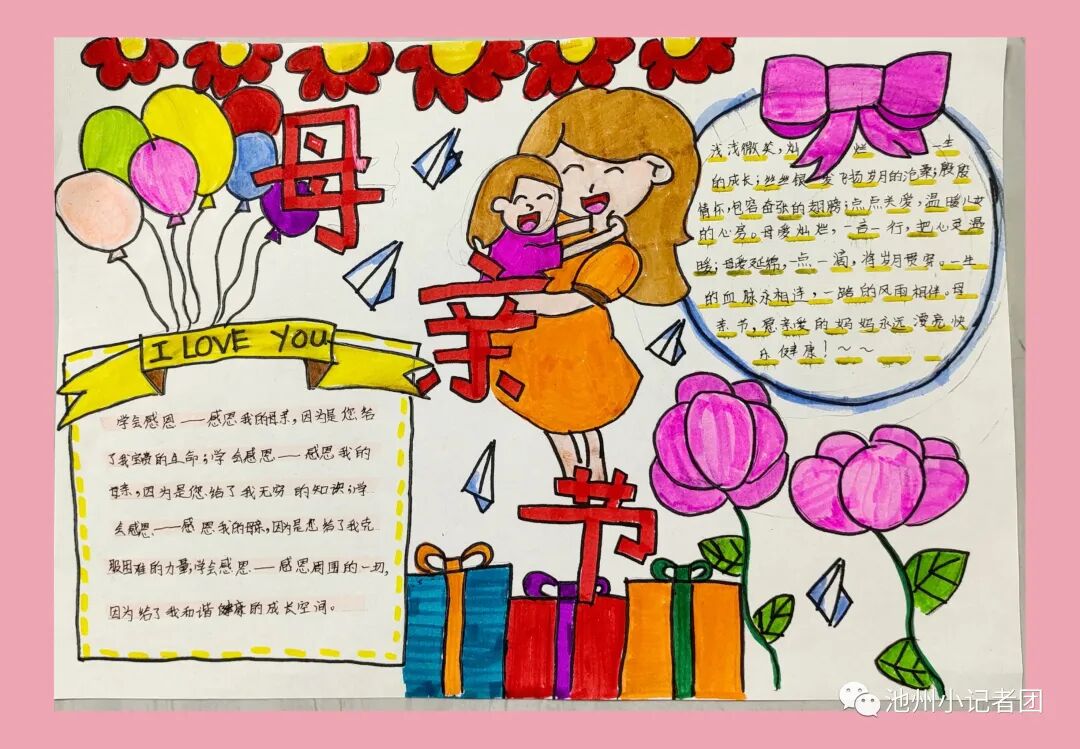 母
亲
节
I LOVE YOU
学会感恩——感恩我的母亲,因为是您给
了我宝贵的生命;学会感恩——感恩我的
母亲,因为是您给了我无穷的知识;学
会感恩——感恩我的母亲,因为是您给了我克
服困难的力量,学会感恩——感恩周围的一切,
因为给了我和谐健康的成长空间。
浅浅微笑,灿烂一生
的成长;丝丝银发飞扬岁月的沧桑;殷殷
情怀,包容奋张的翅膀;点点关爱,温暖儿女
的心房。母爱灿烂,一言一行,把心灵温
暖;母爱延绵,一点一滴,将岁月贯穿。一生
的血脉永相连,一路的风雨相伴。母
亲节,愿亲爱的妈妈永远漂亮快
乐健康!~~
池州小记者团